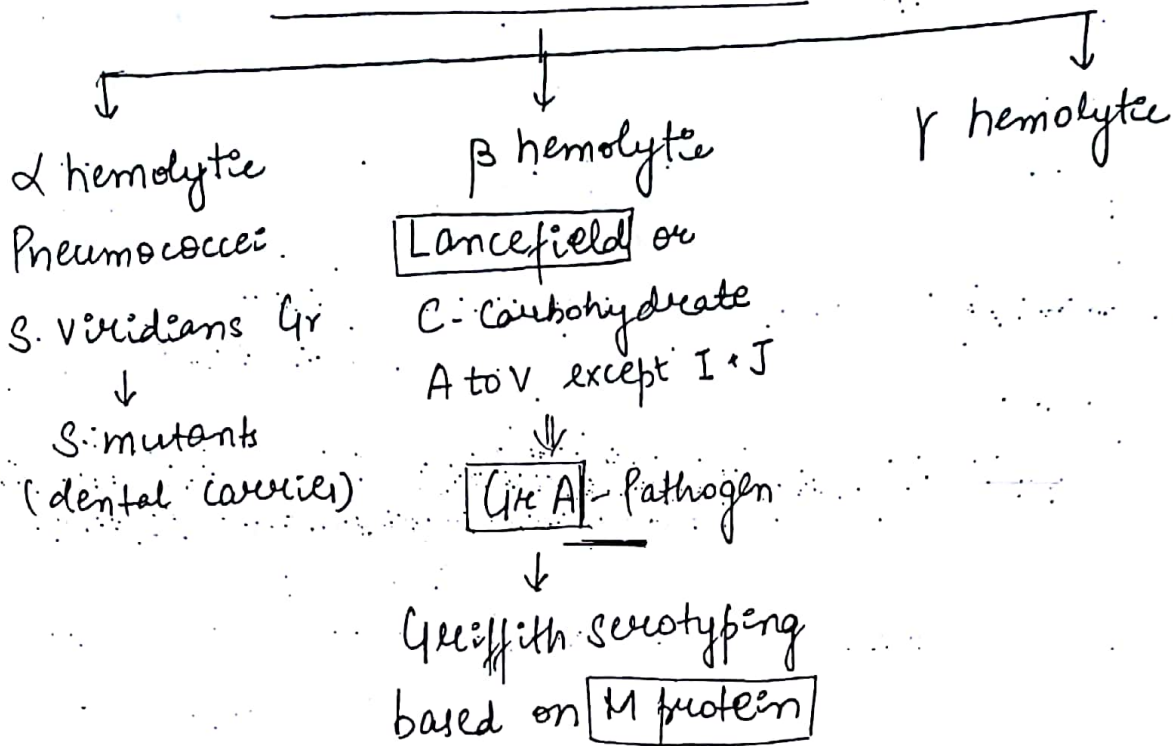 α hemolytic
Pneumococcci.
S. Viridians Gr.
↓
S. mutants
(dental carries)
β hemolytic
Lancefield or
C-Carbohydrate
A to V except I & J
⇓
Gr A - Pathogen
↓
Griffith serotyping
based on M protein
γ hemolytic